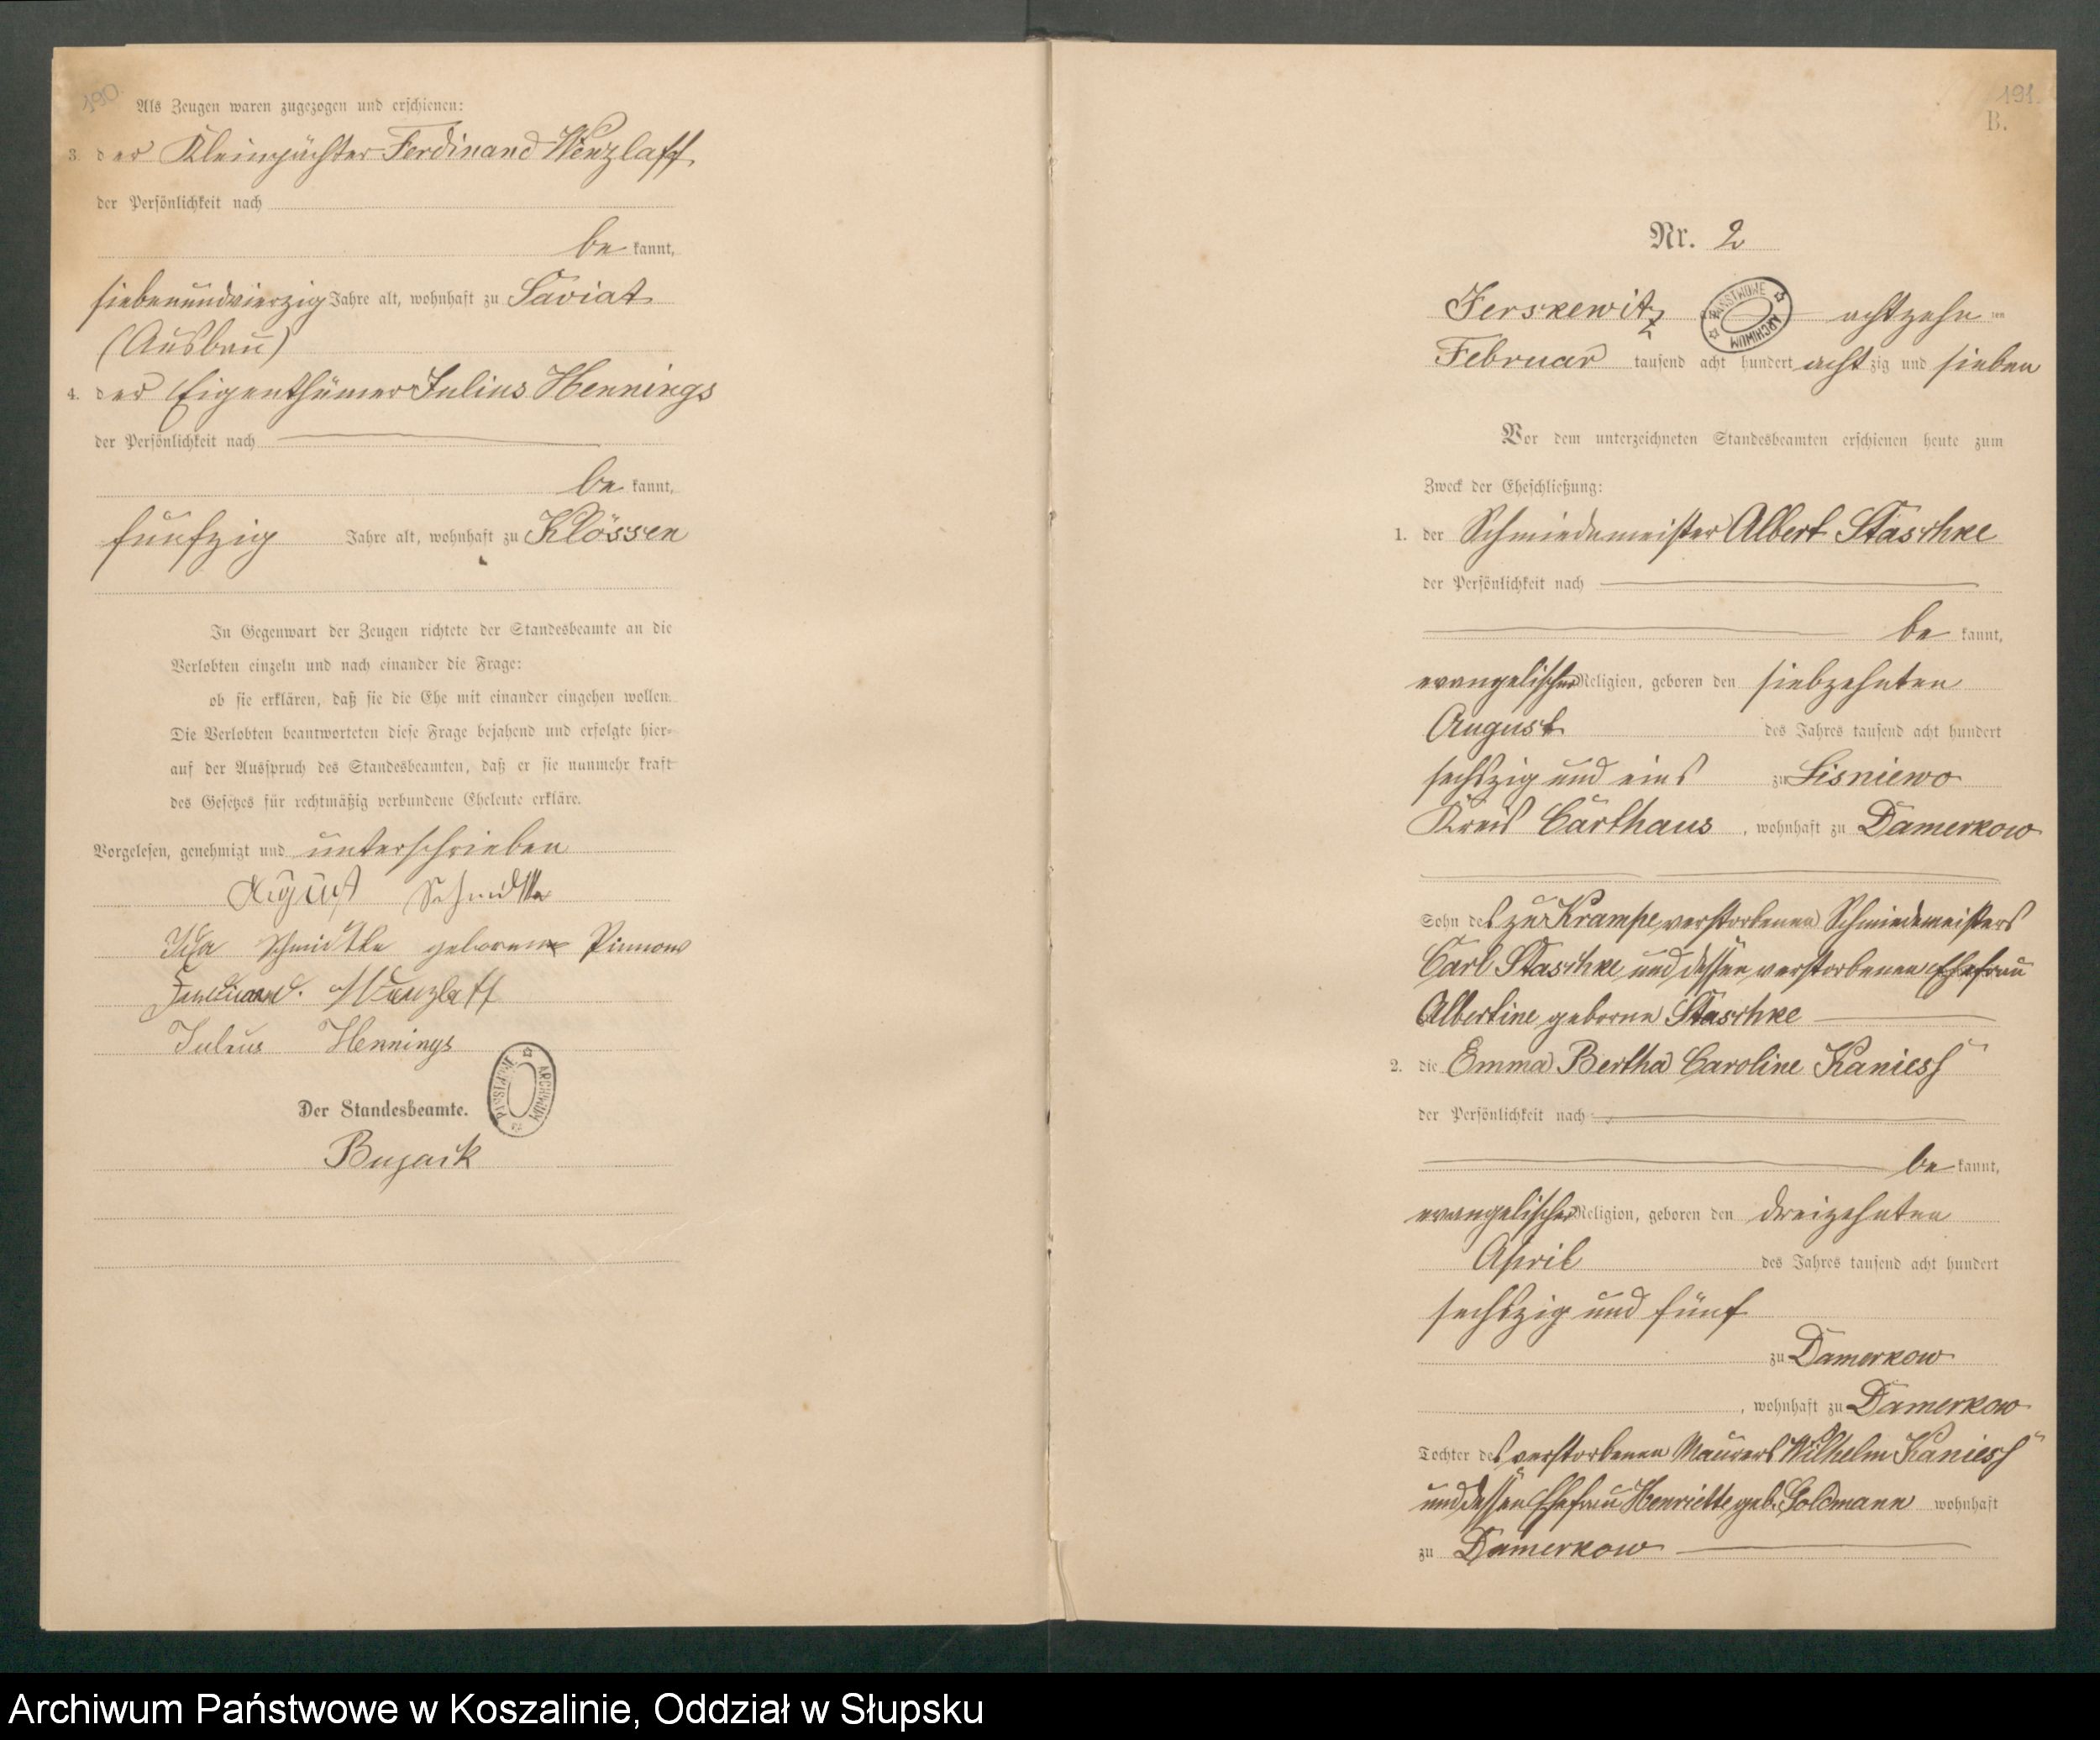 190.
Als Zeugen waren zugezogen und erschienen:
3. der Kleinpächter Ferdinand Wenzlaff,
der Persönlichkeit nach
be kannt,
siebenundvierzig Jahre alt, wohnhaft zu Saviat
(Ausbau)
4. der Eigenthümer Julius Hennings
der Persönlichkeit nach
be kannt,
fünfzig Jahre alt, wohnhaft zu Klössen
In Gegenwart der Zeugen richtete der Standesbeamte an die
Verlobten einzeln und nach einander die Frage:
ob sie erklären, daß sie die Ehe mit einander eingehen wollen.
Die Verlobten beantworteten diese Frage bejahend und erfolgte hier-
auf der Ausspruch des Standesbeamten, daß er sie nunmehr kraft
des Gesetzes für rechtmäßig verbundene Eheleute erkläre.
Vorgelesen, genehmigt und unterschrieben
August Schmidtke
Schmidtke geborene Pinnow
Ferdinand Wenzlaff
Julius Hennings
ARCHIWUM PAŃSTWOWE
Der Standesbeamte.
Bujack
191.
B.
Nr. 2
Jerskewitz achtzehn ten
PAŃSTWOWE ARCHIWUM
Februar tausend acht hundert acht zig und sieben
Vor dem unterzeichneten Standesbeamten erschienen heute zum
Zweck der Eheschließung:
1. der Schmiedemeister Albert Staschke
der Persönlichkeit nach
be kannt,
evangelischer Religion, geboren den siebzehnten
August des Jahres tausend acht hundert
sechszig und eins zu Lisniewo
Kreis Carthaus, wohnhaft zu Damerkow
Sohn des zu Krampe verstorbenen Schmiedemeisters
Carl Staschke und dessen verstorbenen Ehefrau
Albertine geborne Staschke
2. die Emma Bertha Caroline Kaniess
der Persönlichkeit nach
be kannt,
evangelischer Religion, geboren den dreizehnten
April des Jahres tausend acht hundert
sechszig und fünf
zu Damerkow
, wohnhaft zu Damerkow
Tochter des verstorbenen Maurers Wilhelm Kaniess
und dessen Ehefrau Henriette geb. Goldmann wohnhaft
zu Damerkow
Archiwum Państwowe w Koszalinie, Oddział w Słupsku